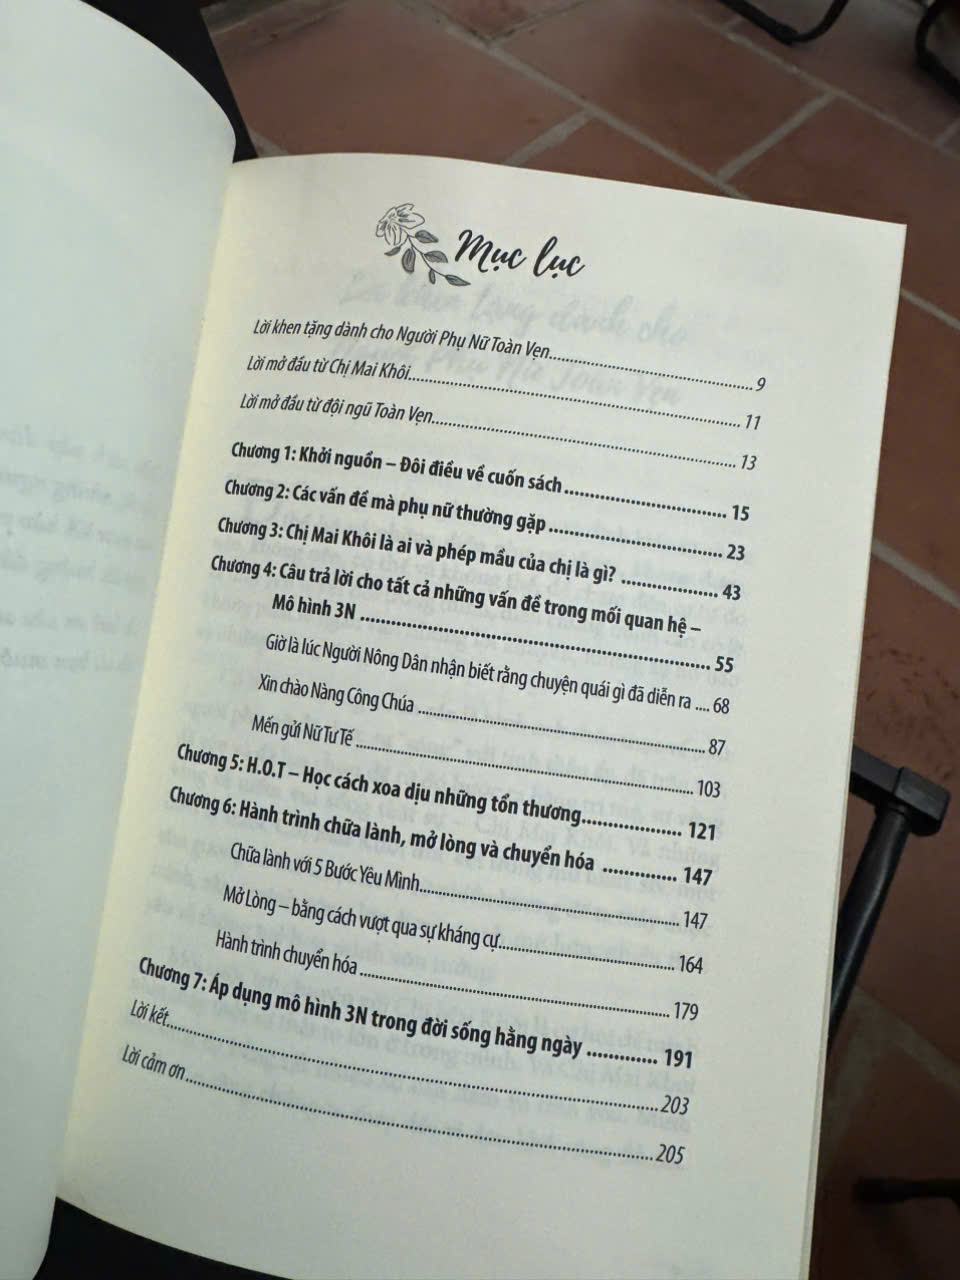 Mục lục
Lời khen tặng dành cho Người Phụ Nữ Toàn Vẹn.......... 9
Lời mở đầu từ Chị Mai Khôi.......... 11
Lời mở đầu từ đội ngũ Toàn Vẹn.......... 13
Chương 1: Khởi nguồn – Đôi điều về cuốn sách.......... 15
Chương 2: Các vấn đề mà phụ nữ thường gặp .......... 23
Chương 3: Chị Mai Khôi là ai và phép mầu của chị là gì? .......... 43
Chương 4: Câu trả lời cho tất cả những vấn đề trong mối quan hệ –
Mô hình 3N .......... 55
Giờ là lúc Người Nông Dân nhận biết rằng chuyện quái gì đã diễn ra .... 68
Xin chào Nàng Công Chúa .......... 87
Mến gửi Nữ Tư Tế .......... 103
Chương 5: H.O.T – Học cách xoa dịu những tổn thương.......... 121
Chương 6: Hành trình chữa lành, mở lòng và chuyển hóa .......... 147
Chữa lành với 5 Bước Yêu Mình.......... 147
Mở Lòng – bằng cách vượt qua sự kháng cự.......... 164
Hành trình chuyển hóa .......... 179
Chương 7: Áp dụng mô hình 3N trong đời sống hằng ngày .......... 191
Lời kết.......... 203
Lời cảm ơn.......... 205